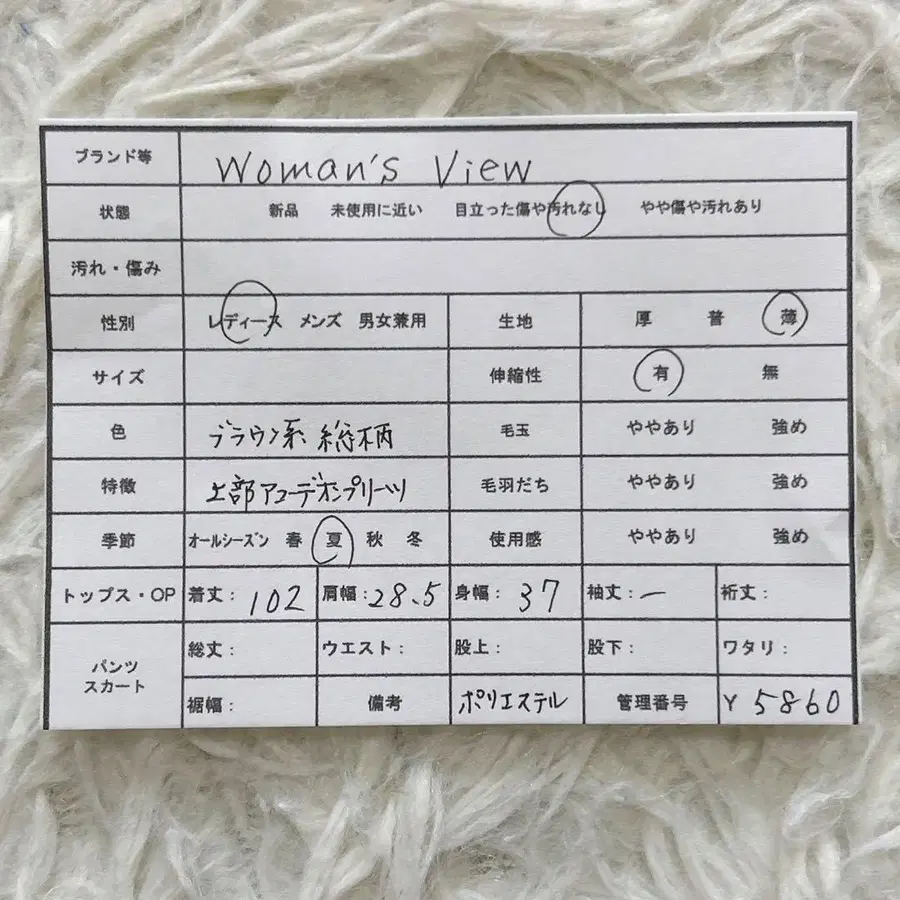 ブランド等 Woman's View
状態 新品 未使用に近い 目立った傷や汚れなし やや傷や汚れあり
汚れ・傷み
性別 レディース メンズ 男女兼用 生地 厚 普 薄
サイズ 伸縮性 有 無
色 ブラウン系 総柄 毛玉 ややあり 強め
特徴 上部アコーデオンプリーツ 毛羽だち ややあり 強め
季節 オールシーズン 春 夏 秋 冬 使用感 ややあり 強め
トップス・OP 着丈: 102 肩幅: 28.5 身幅: 37 袖丈: ー 裄丈:
パンツ スカート 総丈: ウエスト: 股上: 股下: ワタリ:
裾幅: 備考 ポリエステル 管理番号 Y 5860